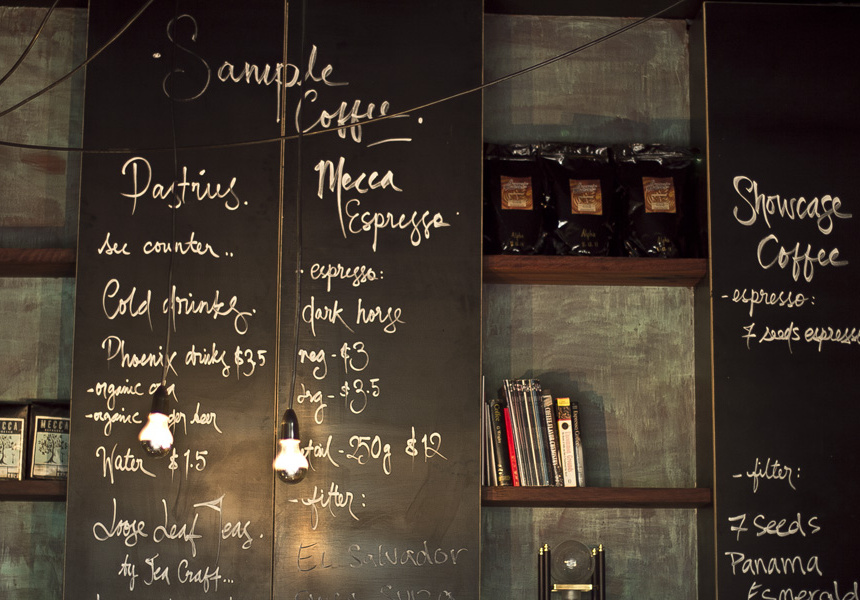 Sample
Coffee.
Pastries.
see counter..
Cold drinks.
Phoenix drinks $3.5
-organic
-organic beer
Water $1.5
Loose Leaf Teas.
by Tea Craft...
Mecca
Espresso.
espresso:
dark horse
reg - $3
lrg - $3.5
retail - 250g $12
-filter:
El Salvador
MECCA
MECCA
Showcase
Coffee
-espresso:
7 seeds espresso
-filter:
7 Seeds
Panama
Esmerald